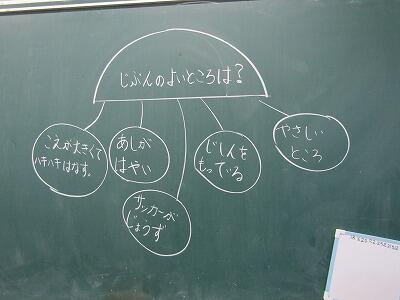 じぶんのよいところは?
こえが大きくて
ハキハキはなす。
あしが
はやい
サッカーが
じょうず
じしんを
もっている
やさしい
ところ